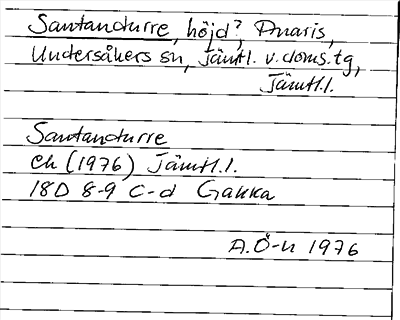 Santandurre, höjd?, Anaris,
Undersåkers sn, Jämtl. v. doms.tg,
Jämtl.l.
Santandurre
ek (1976) Jämtl.l.
18D 8-9 c-d Gakka
A.Ö-n 1976